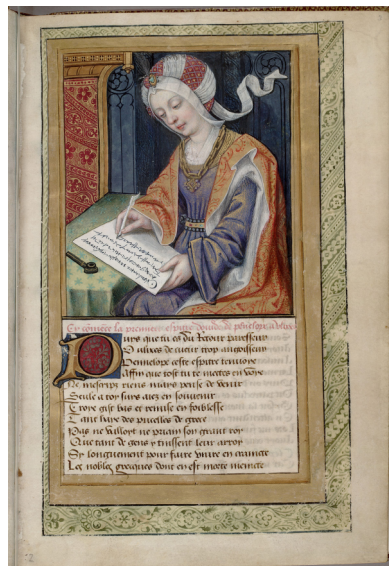 Cy cōmēce la premiere espitre douide de penelope a vlixes
Puys que tu es du Retour paresseux
O ulixes de cueur trop angoisseux
Pennelope ceste espitre tenuoye
Affin que tost tu te mettes en voye
Ne mescript riens mays pense de venir
Seule a toy suys aiez en souuenir
Troye gist bis et remise en foiblesse
Tant haye des pucelles de grece
Pas ne valloyt ne priam son grant roy
Que tant de gens y tinssent leur arroy
Sy longuement pour faire viure en craincte
Les nobles grecques dont en est morte maincte